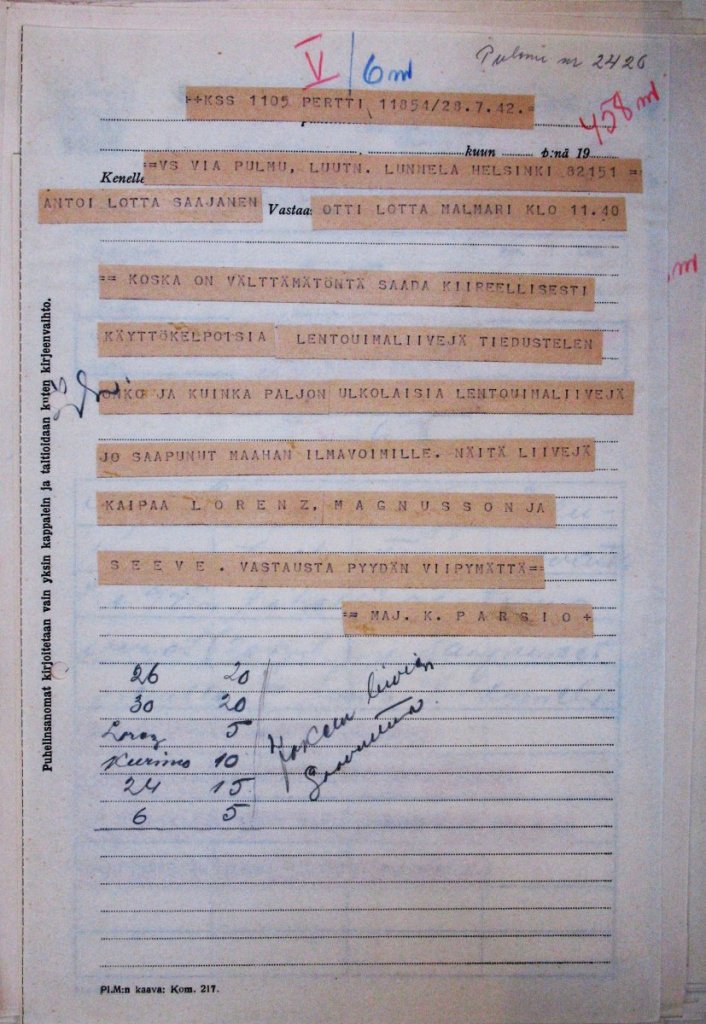 Pulmu nr 2426
V/6 ml
458 ml
=+KSS 1105 PERTTI 11854/28.7.42.=
kuun p:nä 19
Kenelle =VS VIA PULMU, LUUTN. LUNNELA HELSINKI 82151 ==
ANTOI LOTTA SAAJANEN Vastaa: OTTI LOTTA MALMARI KLO 11.40
== KOSKA ON VÄLTTÄMÄTÖNTÄ SAADA KIIREELLISESTI
KÄYTTÖKELPOISIA LENTOUIMALIIVEJÄ TIEDUSTELEN
ONKO JA KUINKA PALJON ULKOLAISIA LENTOUIMALIIVEJÄ
JO SAAPUNUT MAAHAN ILMAVOIMILLE. NÄITÄ LIIVEJÄ
KAIPAA L O R E N Z, M A G N U S S O N JA
S E E V E . VASTAUSTA PYYDÄN VIIPYMÄTTÄ==
== MAJ. K. P A R S I O +
26 20
30 20
Lorenz 5
Kurimo 10
24 15
6 5
liivien
Puhelinsanomat kirjoitetaan vain yksin kappalein ja taltioidaan kuten kirjeenvaihto.
Pl.M:n kaava: Kom. 217.